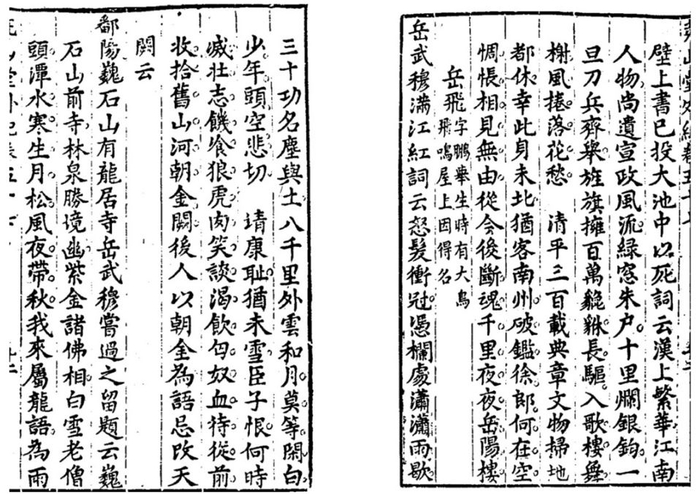 壁上書已投大池中以死詞云漢上繁華江南
人物尚遺宣政風流綠窓朱户十里爛銀鈎一
旦刀兵齊舉旌旗擁百萬貔貅長驅入歌樓舞
榭風捲落花愁　清平三百載典章文物掃地
都休幸此身未北猶客南州破鑑徐郎何在空
惆悵相見無由從今後斷魂千里夜夜岳陽樓
岳飛字鵬舉生時有大鳥
飛鳴屋上因得名
岳武穆滿江紅詞云怒髮衝冠憑欄處瀟瀟雨歇
三十功名塵與土八千里外雲和月莫等閒白
少年頭空悲切　靖康耻猶未雪臣子恨何時
滅壯志饑飡狼虎肉笑談渴飲匈奴血待從前
收拾舊山河朝金闕後人以朝金為語忌改天
闕云
鄱陽巍石山有龍居寺岳武穆嘗過之留題云巍
石山前寺林泉勝境幽紫金諸佛相白雪老僧
頭潭水寒生月松風夜帶秋我來屬龍語為雨